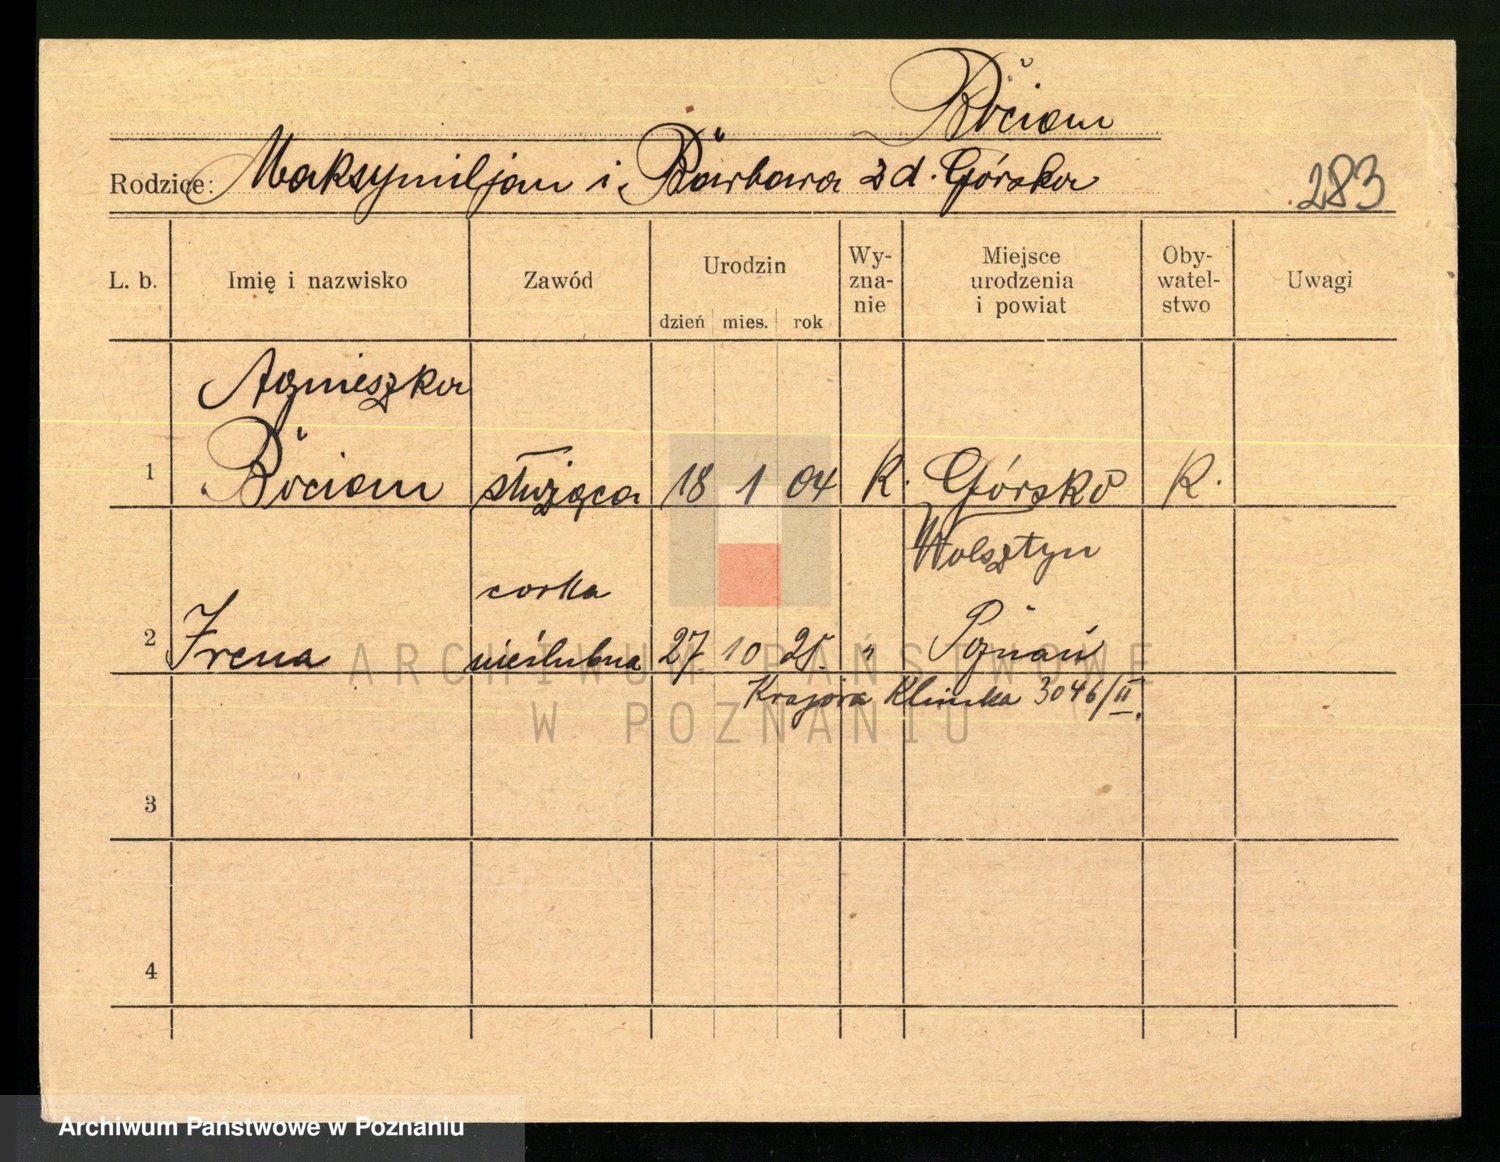 Bociam
Rodzice: Maksymiljan i Barbara z d. Górska
283
L. b. Imię i nazwisko Zawód Urodzin Wy-zna-nie Miejsce urodzenia i powiat Oby-watel-stwo Uwagi
dzień mies. rok
Agnieszka
1 Bociam służąca 18 1 04 K. Górsko K.
Wolsztyn
corka
2 Irena nieślubna 27. 10 25. " Poznań
Krajowa Klinika 3046/II.
3
4
ARCHIWUM PAŃSTWOWE
W POZNANIU
Archiwum Państwowe w Poznaniu